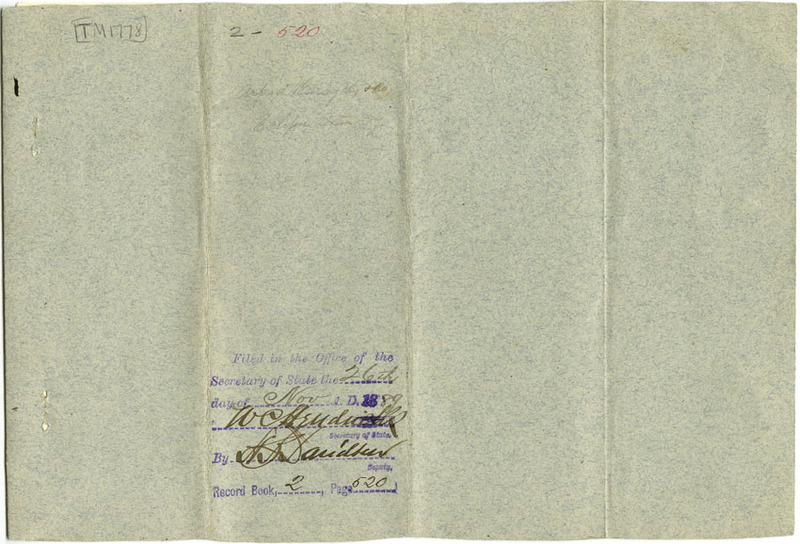 TM1778
2 - 520
Filed in the Office of the
Secretary of State the 26th
day of Nov A. D. 1889
W C Hendricks
Secretary of State.
By
Deputy.
Record Book, 2, Page 520